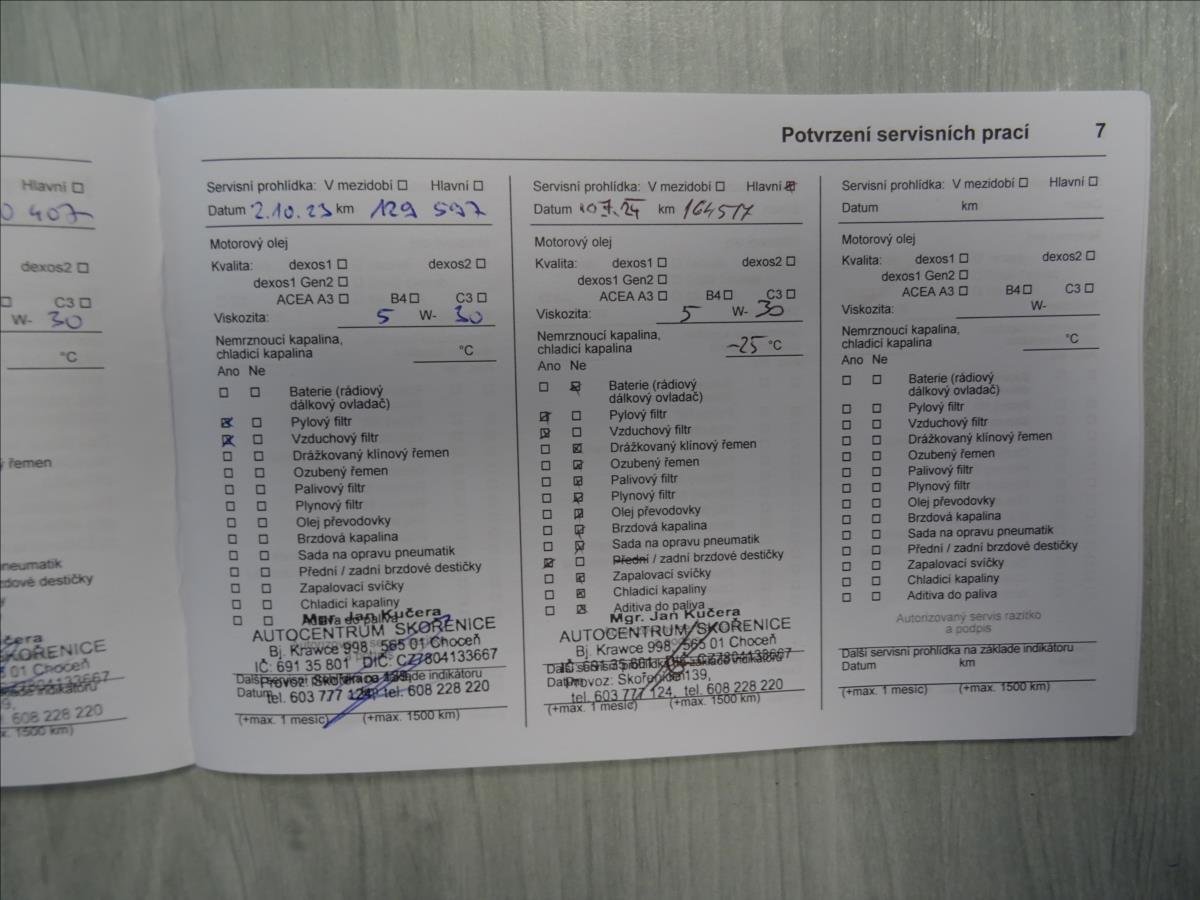 Potvrzení servisních prací 7
Hlavní ☐
407
dexos2 ☐
☐ C3 ☐
W- 30
°C
řemen
neumatik
zdové destičky
SKOŘENICE
01 Choceň
608 228 220
1500 km)
Servisní prohlídka: V mezidobí ☐ Hlavní ☐
Datum 2.10.23 km 129 597
Motorový olej
Kvalita: dexos1 ☐ dexos2 ☐
dexos1 Gen2 ☐
ACEA A3 ☐ B4 ☐ C3 ☐
Viskozita: 5 W- 30
Nemrznoucí kapalina,
chladicí kapalina °C
Ano Ne
☐ ☐ Baterie (rádiový
dálkový ovladač)
☒ ☐ Pylový filtr
☒ ☐ Vzduchový filtr
☐ ☐ Drážkovaný klínový řemen
☐ ☐ Ozubený řemen
☐ ☐ Palivový filtr
☐ ☐ Plynový filtr
☐ ☐ Olej převodovky
☐ ☐ Brzdová kapalina
☐ ☐ Sada na opravu pneumatik
☐ ☐ Přední / zadní brzdové destičky
☐ ☐ Zapalovací svíčky
☐ ☐ Chladicí kapaliny
☐ ☐ Aditiva do paliva
Mgr. Jan Kučera
AUTOCENTRUM SKOŘENICE
Bj. Krawce 998, 565 01 Choceň
IČ: 691 35 801 DIČ: CZ7804133667
Další servisní prohlídka na základě indikátoru
Provoz: Skořenice 139,
Datum
tel. 603 777 124, tel. 608 228 220
(+max. 1 měsíc) (+max. 1500 km)
Servisní prohlídka: V mezidobí ☐ Hlavní ☒
Datum 7.24 km 164517
Motorový olej
Kvalita: dexos1 ☐ dexos2 ☐
dexos1 Gen2 ☐
ACEA A3 ☐ B4 ☐ C3 ☐
Viskozita: 5 W- 30
Nemrznoucí kapalina,
chladicí kapalina -25 °C
Ano Ne
☐ ☒ Baterie (rádiový
dálkový ovladač)
☒ ☐ Pylový filtr
☒ ☐ Vzduchový filtr
☐ ☒ Drážkovaný klínový řemen
☐ ☒ Ozubený řemen
☐ ☒ Palivový filtr
☐ ☒ Plynový filtr
☐ ☒ Olej převodovky
☐ ☒ Brzdová kapalina
☐ ☒ Sada na opravu pneumatik
☒ ☐ Přední / zadní brzdové destičky
☐ ☒ Zapalovací svíčky
☐ ☒ Chladicí kapaliny
☐ ☒ Aditiva do paliva
Mgr. Jan Kučera
AUTOCENTRUM SKOŘENICE
Bj. Krawce 998, 565 01 Choceň
IČ: 691 35 801 DIČ: CZ7804133667
Další servisní prohlídka na základě indikátoru
Provoz: Skořenice 139,
Datum
tel. 603 777 124, tel. 608 228 220
(+max. 1 měsíc) (+max. 1500 km)
Servisní prohlídka: V mezidobí ☐ Hlavní ☐
Datum km
Motorový olej
Kvalita: dexos1 ☐ dexos2 ☐
dexos1 Gen2 ☐
ACEA A3 ☐ B4 ☐ C3 ☐
Viskozita: W-
Nemrznoucí kapalina,
chladicí kapalina °C
Ano Ne
☐ ☐ Baterie (rádiový
dálkový ovladač)
☐ ☐ Pylový filtr
☐ ☐ Vzduchový filtr
☐ ☐ Drážkovaný klínový řemen
☐ ☐ Ozubený řemen
☐ ☐ Palivový filtr
☐ ☐ Plynový filtr
☐ ☐ Olej převodovky
☐ ☐ Brzdová kapalina
☐ ☐ Sada na opravu pneumatik
☐ ☐ Přední / zadní brzdové destičky
☐ ☐ Zapalovací svíčky
☐ ☐ Chladicí kapaliny
☐ ☐ Aditiva do paliva
Autorizovaný servis razítko
a podpis
Další servisní prohlídka na základě indikátoru
Datum km
(+max. 1 měsíc) (+max. 1500 km)